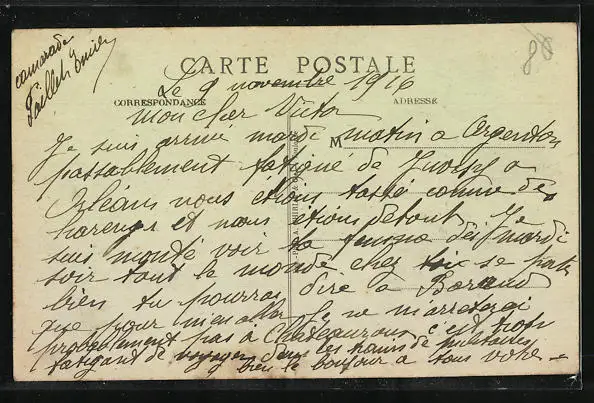 CARTE POSTALE
Le 9 novembre 1916
CORRESPONDANCE
ADRESSE
mon cher Victor
M
Je suis arrivé mardi matin a Argenton
passablement fatigué de a
Orléans nous etions tassé comme des
harengs et nous étions debout Je
suis monté voir ta mardi
soir tout le monde chez toi se porte
bien tu pourras dire a
que pour m'en aller Je ne m'arreterai
probablement pas à Chateauroux c'est trop
fatigant de voyager dans les trains de militaires
bien le bonjour a tous votre
camarade
Paillet Emile
88